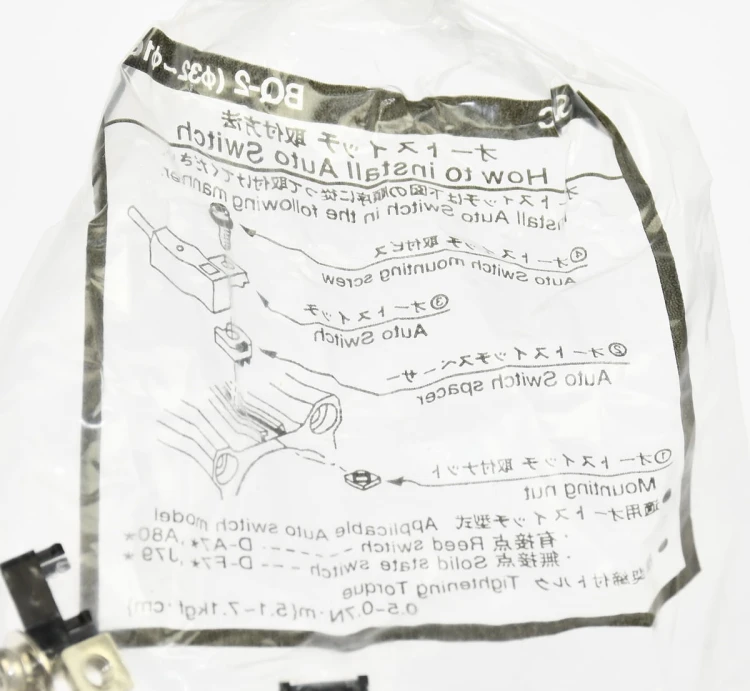 SMC BQ-2 (φ32~φ10
オートスイッチ 取付方法
How to install Auto Switch
オートスイッチは下図の順序に従って取付けてくださ
Install Auto Switch in the following manner
④オートスイッチ 取付ビス
Auto Switch mounting screw
③オートスイッチ
Auto Switch
②オートスイッチスペーサー
Auto Switch spacer
①オートスイッチ 取付ナット
Mounting nut
適用オートスイッチ型式 Applicable Auto switch model
・有接点 Reed Switch ------ D-A7*,A80*
・無接点 Solid state Switch --- D-F7*,J79*
締付トルク Tightening Torque
0.5~0.7N·m(5.1~7.1kgf·cm)